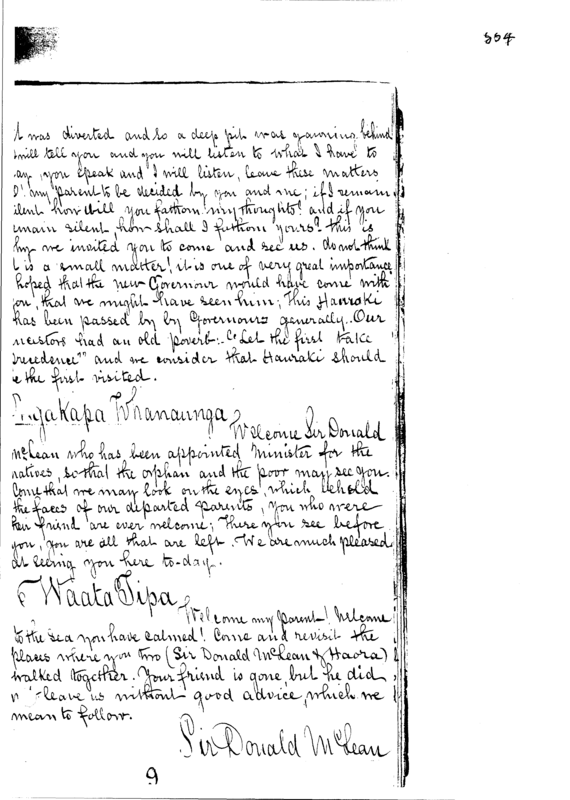 554
it was diverted and so a deep pit was yawning behind
I will tell you and you will listen to what I have to
say, you speak and I will listen, leave these matters
O! my parent to be decided by you and me; if I remain
silent how will you fathom my thoughts? and if you
remain silent, how shall I fathom yours? this is
why we invited you to come and see us. do not think
it is a small matter! it is one of very great importance
hoped that the new Governour would have come with
you, that we might have seen him; this Hauraki
has been passed by by Governours generally. Our
ancestors had an old poverb:- "Let the first take
precedence" and we consider that Hauraki should
be the first visited.
Ngakapa Whanaunga
Welcome Sir Donald
McLean who has been appointed Minister for the
natives, so that the orphan and the poor may see you.
Come that we may look on the eyes, which behold
the faces of our departed parents, you who were
their friend are ever welcome; There you see before
you, you are all that are left. We are much pleased
at seeing you here to-day.
Waata Tipa
Welcome my Parent! Welcome
to the sea you have calmed! Come and revisit the
places where you two (Sir Donald McLean & Haora)
walked together. Your friend is gone, but he did
leave us without good advice, which we
mean to follow.
Sir Donald McLean
9